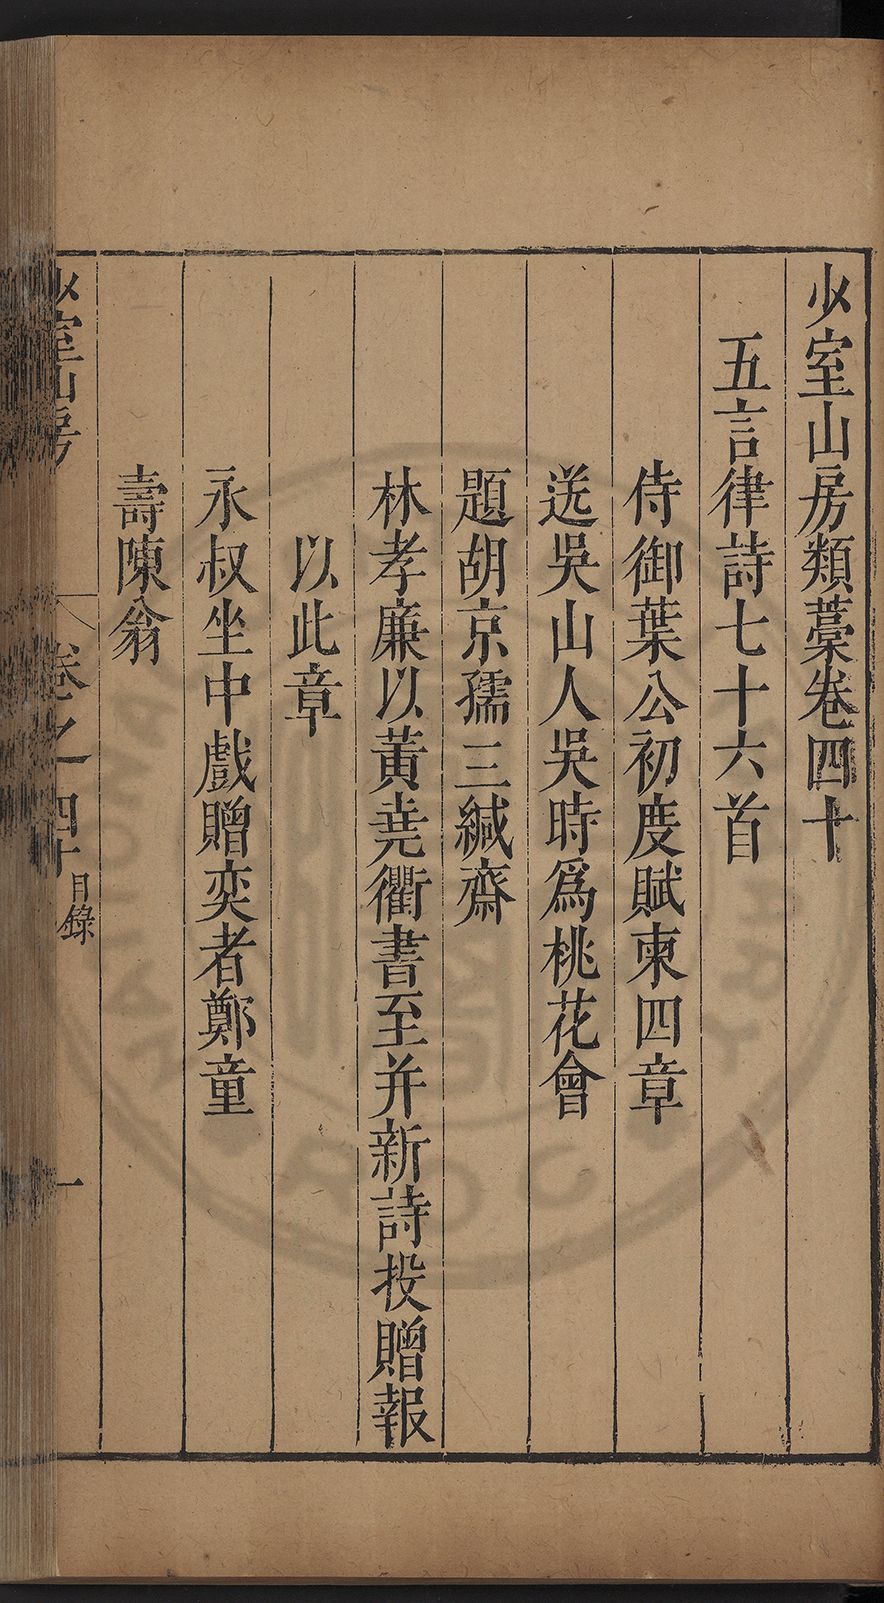 少室山房類藁卷四十
五言律詩七十六首
侍御葉公初度賦柬四章
送吳山人吳時爲桃花會
題胡京孺三緘齋
林孝廉以黃堯衢書至并新詩投贈報
以此章
永叔坐中戲贈奕者鄭童
壽陳翁
少室山房 卷之四十 目錄 一